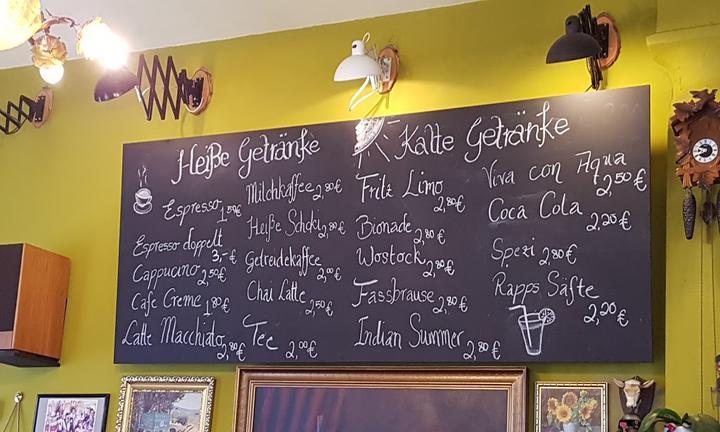 Heiße Getränke
Espresso 1,50€
Espresso doppelt
3,-€
Cappucino 2,50€
Cafe Creme 1,80€
Latte Macchiato 2,80€
Milchkaffee 2,80€
Heiße Schoki 2,80€
Getreidekaffee
2,00€
Chai Latte 2,50€
Tee 2,00€
Kalte Getränke
Fritz Limo
2,80€
Bionade 2,80€
Wostock 2,80€
Fassbrause 2,80€
Indian Summer 2,80€
Viva con Aqua
2,50€
Coca Cola
2,20€
Spezi 2,80€
Rapps Säfte
2,20€